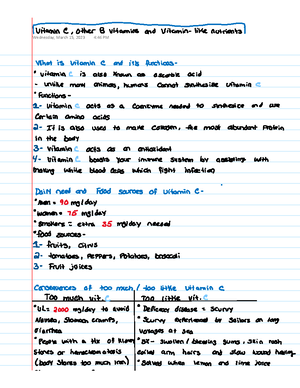 Vitamin C, other B vitamins and Vitamin-like nutrients
Wednesday, March 15, 2023
What is Vitamin C and its functions-
* Vitamin C is also known as ascorbic acid
- unlike most animals, humans cannot synthesize vitamin C
* Functions -
1- Vitamin C acts as a coenzyme needed to synthesize and use
certain amino acids
2- It is also used to make collagen, the most abundant protein
in the body
3- Vitamin C acts as an antioxidant
4- Vitamin C boosts your immune system by assisting with
making white blood cells which fight infection
Daily need and food sources of Vitamin C-
*Men = 90 mg/day
*Women = 75 mg/day
*Smokers = extra 35 mg/day needed
*Food sources -
1- fruits, citrus
2- tomatoes, peppers, potatoes, broccoli
3- Fruit juices
Consequences of too much / too little Vitamin C
Too much vit. C Too little vit. C
*UL= 2000 mg/day to avoid * Deficiency disease = scurvy
nausea, stomach cramps, * Scurvy experienced by sailors on long
diarrhea voyages at sea
*People with a Hx of kidney *SX- swollen/bleeding gums, skin rash
stones or hemochromatosis coiled arm hairs and slow wound healing
(body stores too much iron) * Solved when lemon and lime juice